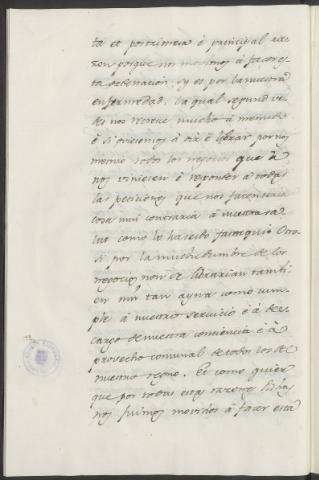 ta et postrimera é principal ra-
zon porque nos movimos á facer es-
ta ordenacion, sy es por la nuestra
enfermedad, la qual segund ve-
des nos recrece mucho á menudo
é si oviesemos á oir é librar por nos
mesmo todos los negocios que á
nos viniesen é responder á todas
las peticiones que nos facen seria
cosa mui contraria á nuestra sa-
lud como lo ha seido fasta quí. Otro
si por la muchedumbre de los
negocios non se librarian tambi-
en nin tan ayna como cum-
ple á nuestro servicio é á des-
cargo de nuestra conciencia é á
provecho comunal de todos los de
nuestro regno. Et como quier
que por todas estas razones
nos fuimos movidos á facer esta